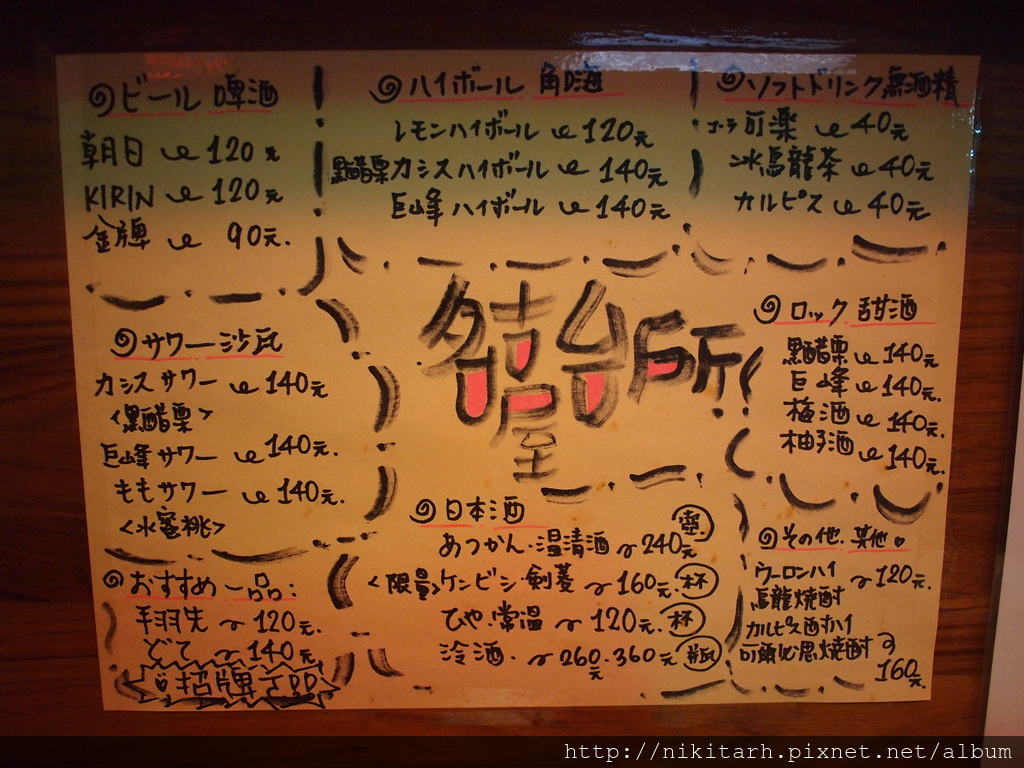 ビール 啤酒
朝日 120元
KIRIN 120元
金牌 90元.
ハイボール 角嗨
レモンハイボール 120元
黑醋栗カシスハイボール 140元
巨峰 ハイボール 140元
ソフトドリンク無酒精
コーラ 可樂 40元
冰烏龍茶 40元
カルピス 40元
名古屋台所
サワー沙瓦
カシスサワー 140元
<黑醋栗>
巨峰サワー 140元.
ももサワー 140元.
<水蜜桃>
ロック 甜酒
黑醋栗 140元.
巨峰 140元.
梅酒 140元.
柚子酒 140元.
おすすめ一品:
手羽先 120元.
どて 140元.
招牌
日本酒
あつかん.温清酒 240元
<限量>ケンビシ.剣菱 160元. 杯
ひや.常溫 120元. 杯
冷酒. 260元.360元 瓶
その他.其他.
ウーロンハイ 120元.
烏龍燒酎
カルピス酎ハイ
可爾必思燒酎
160元.
http://nikitarh.pixnet.net/album